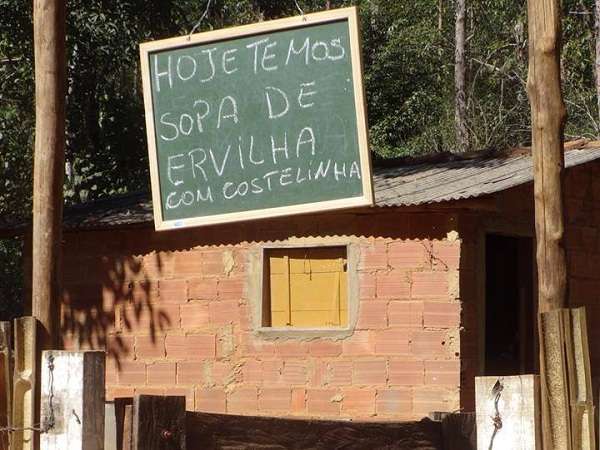 HOJE TEMOS
SOPA DE
ERVILHA
COM COSTELINHA